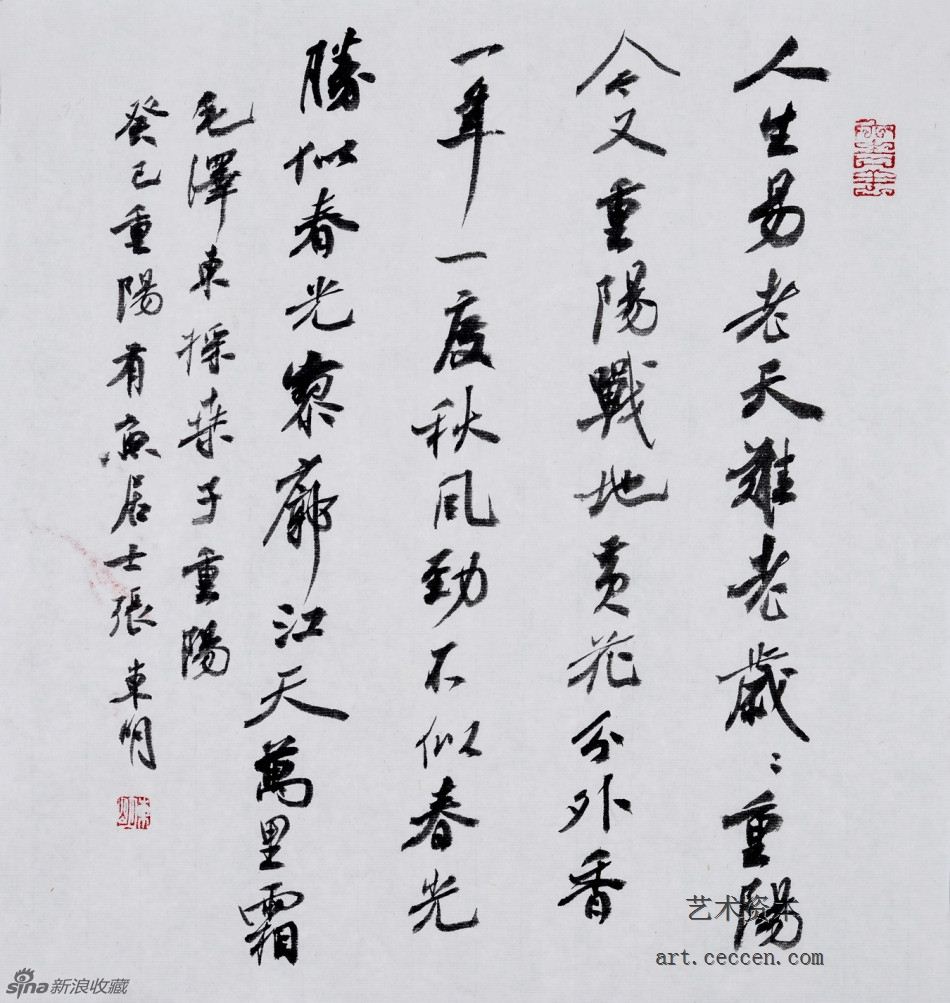 人生易老天難老歲〻重陽
今又重陽戰地黄花分外香
一年一度秋風勁不似春光
勝似春光寥廓江天萬里霜
毛澤東採桑子重陽
癸巳重陽有魚居士張東明
艺术资本
art.ceccen.com
sina新浪收藏